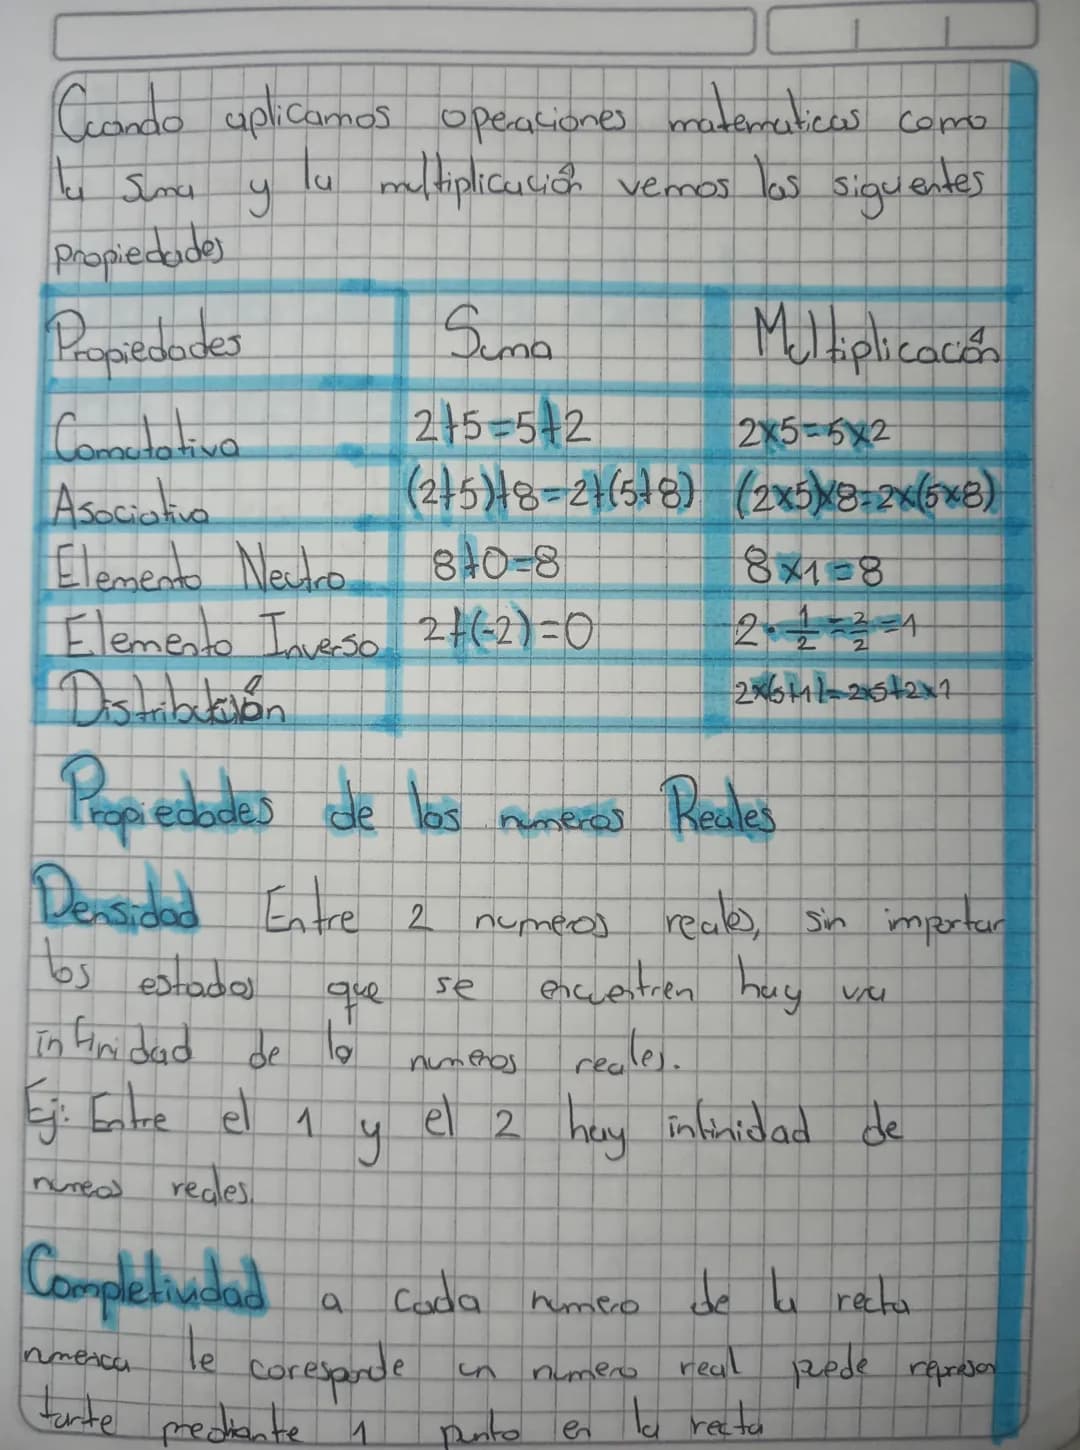 Cuando aplicamos operaciones matematicas como
la suma y la multiplicación vemos las siguientes
propiedades
Propiedades Suma Multiplicación
Comutativa 2+5=5+2 2x5=5x2
Asociativa (2+5)+8=2+(5+8) (2x5)x8=2x(5x8)
Elemento Neutro 8+0=8 8x1=8
Elemento Inverso 2+(-2)=0 2·1/2=2/2=1
Distribución 2x(5+1)=2x5+2x1
Propiedades de los numeros Reales
Densidad Entre 2 numeros reales, sin importar
los estados que se encuentren hay una
infinidad de lo numeros reales.
Ej: Entre el 1 y el 2 hay infinidad de
numeros reales.
Completividad a cada numero de la recta
numerica le coresponde un numero real puede represen
tarte mediante 1 punto en la recta